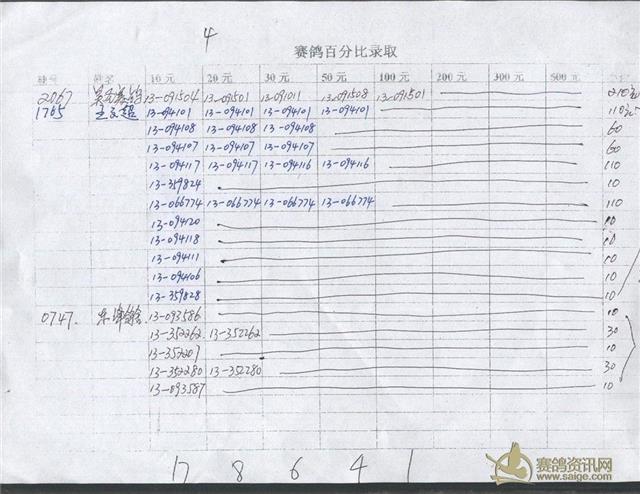 4
赛鸽百分比录取
棚号 姓名 10元 20元 30元 50元 100元 200元 300元 500元
2067 13-091504 13-091501 13-091011 13-091508 13-091501 210元
1765 王文超 13-094101 13-094101 13-094101 13-094101 110元
13-094108 13-094108 13-094108 60
13-094107 13-094107 13-094107 60
13-094117 13-094117 13-094116 13-094116 110
13-359824 10
13-066774 13-066774 13-066774 13-066774 110
13-094120 10
13-094118 10
13-094111 10
13-094106 10
13-359828 10
0747. 13-093586 10
13-352262 13-352262 30
13-352207 10
13-352280 13-352280 30
13-093587 10
17 8 6 4 1
赛鸽资讯网
www.saige.com